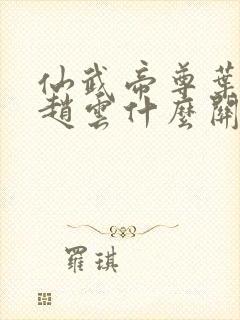 仙武帝尊葉
趙雲什麼關
羅琪